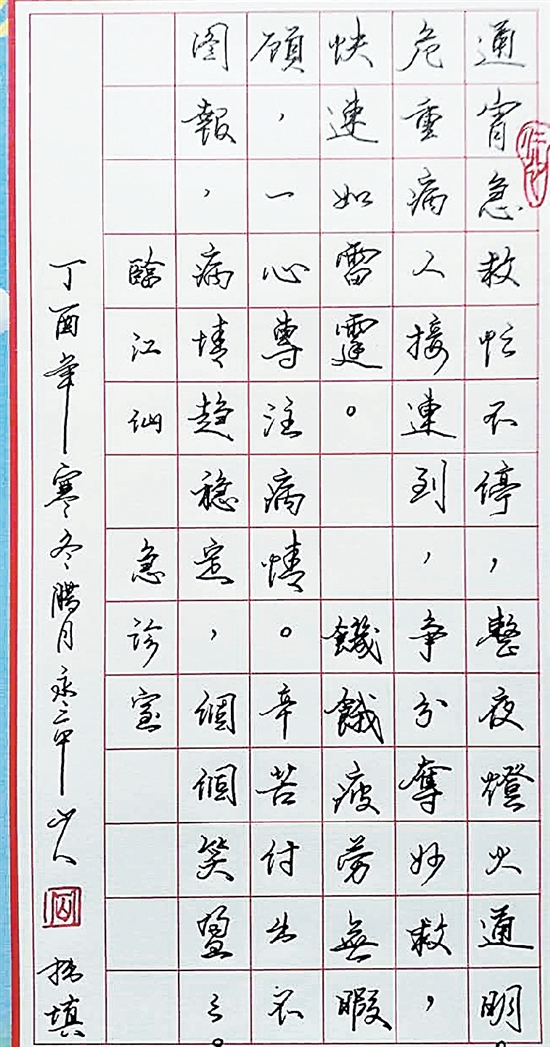 通宵急救忙不停，整夜燈火通明。
危重病人接連到，争分奪妙救，
快速如雷霆。 饑餓疲勞無暇
顾，一心專注病情。辛苦付出不
图報，病情趋稳定，個個笑盈々。
臨江仙 急診室
丁酉年寒冬腊月 山人 拙填